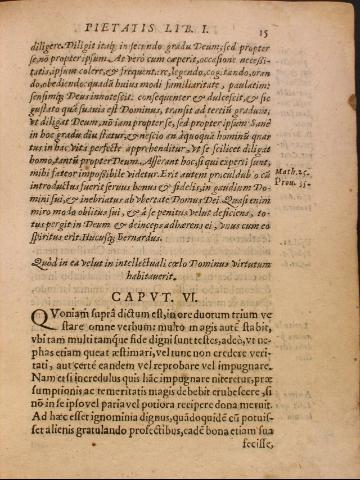 PIETATIS LIB. I. 15
diligere. Diligit itaq; in secundo gradu Deum; sed propter
se, nō propter ipsum. At vero cum cœperit, occasione necessi-
tatis, ipsum colere, & frequentare, legendo, cogitando, oran
do, obediendo: quadā huiusmodi familiaritate, paulatim
sensimq; Deus innotescit: consequenter & dulcescit, & sic
gustato quā suauis est Dominus, transit ad tertiū gradum,
vt diligat Deum, nō iam propter se, sed propter ipsum. Sanè
in hoc gradu diu statur, & nescio an à quoquā hominū quar
tus in hac vita perfectè apprehenditur. Vt se scilicet diligat
homo, tantū propter Deum. Asserant hoc, si qui experti sunt,
mihi fateor impossibile videtur. Erit autem proculdubio cū
introductus fuerit seruus bonus & fidelis, in gaudium Do-
mini sui, & inebriatus ab vbertate Domus Dei. Quasi enim
miro modo oblitus sui, & à se penitus velut deficiens, to-
tus perget in Deum & deinceps adhærens ei, vnus cum eo
spiritus erit. Hucusq; Bernardus.
Math. 25.
Prou. 35.
Quòd in ea velut in intellectuali cœlo Dominus virtutum
habitauerit.
CAPVT. VI.
QVoniam suprà dictum est, in ore duorum trium ve
stare omne verbum: multo magis autē stabit,
vbi tam multi tamque fide digni sunt testes, adeò, vt ne-
phas etiam queat æstimari, vel tunc non credere veri-
tati, aut certè eandem vel reprobare vel impugnare.
Nam etsi incredulus quis hāc impugnare niteretur, præ
sumptionis ac temeritatis magis debebit erubescere, si
nō in se ipso vel paria vel potiora recipere dona meruit.
Ad hæc esset ignominia dignus, quādoquidē cū potuis-
set alienis gratulando profectibus, eadē bona etiam sua
fecisse,